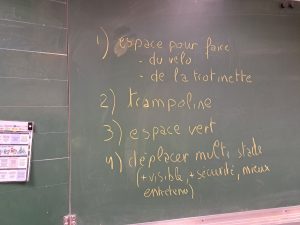 1) espace pour faire
- du vélo
- de la trotinette
2) trampoline
3) espace vert
4) déplacer multi stade
(+ visible, + sécurité, mieux
entretenu)